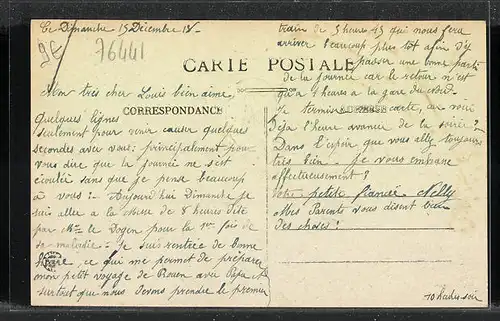 Ce Dimanche 15 Décembre 18
76441
CARTE POSTALE
CORRESPONDANCE
ADRESSE
Mon très cher Louis bien aimé,
Quelques lignes
seulement pour venir causer quelques
secondes avec vous : principalement pour
vous dire que la journée ne s'est
écoulée sans que je pense beaucoup
à vous : Aujourd'hui Dimanche je
suis allée à la messe de 8 heures dite
par le Doyen pour la 1ère fois de
sa maladie : Je suis rentrée de bonne
heure, ce qui me permet de préparer
mon petit voyage de Rouen avec Papa
surtout que nous devons prendre le premier
train de 5 heures 45 qui nous fera
arriver beaucoup plus tôt afin d'y
passer une bonne partie
de la journée car le retour n'est
qu'à heures à la gare du
Je termine carte, car voici
déjà l'heure avancée de la soirée !
Dans l'espoir que vous allez toujours
très bien - Je vous embrasse
affectueusement !
Votre petite fiancée Nelly
Mes Parents vous disent bien
des choses !
10 heures soir